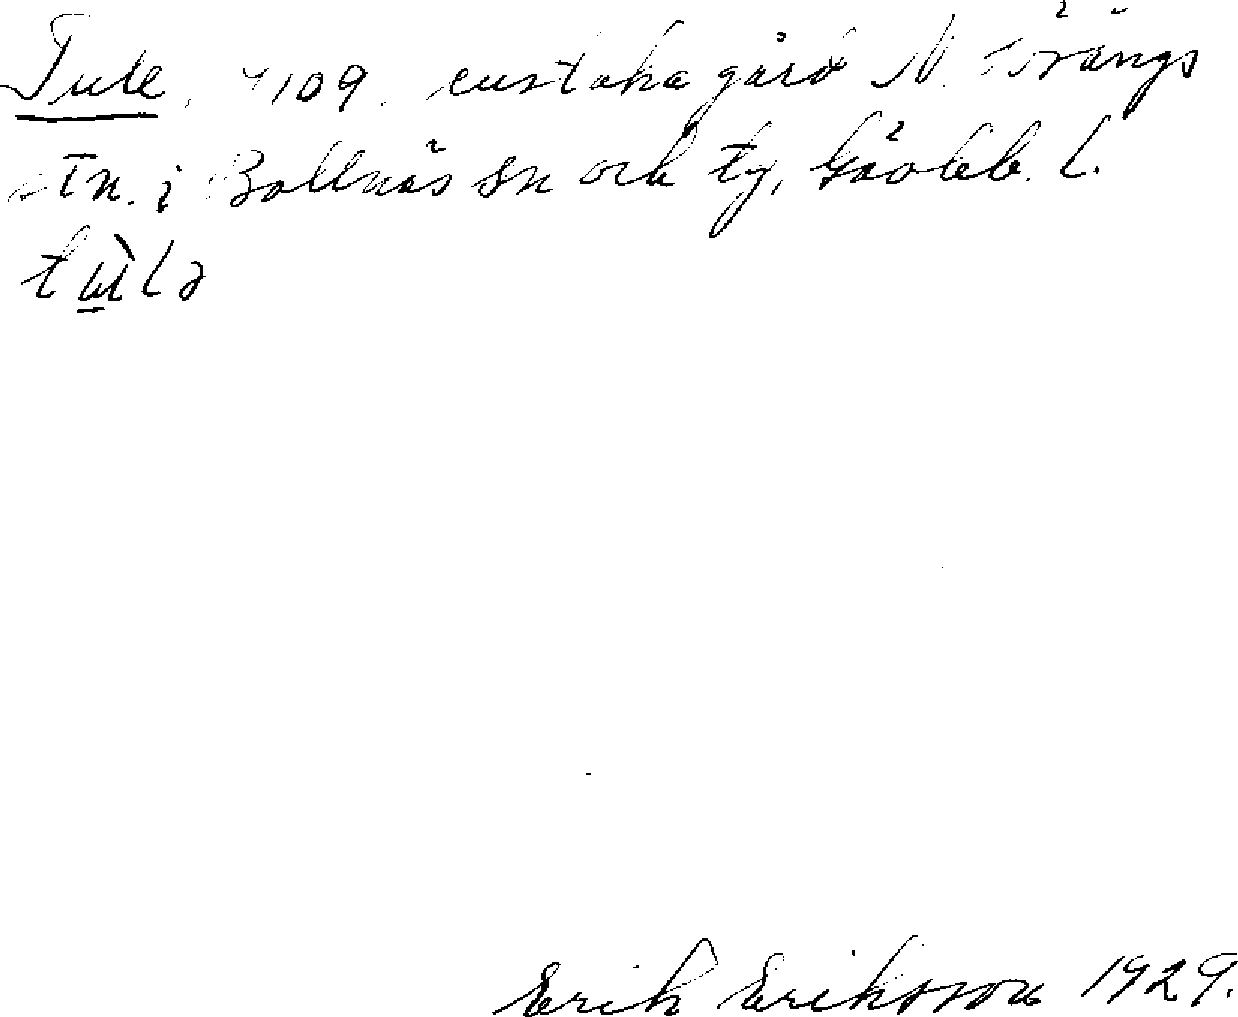 Tule, 109. enstaka gård N. Svängs
stn. i Bollnäs sn och tg, Gävleb. l.
tùlə
Erik Eriksson 1929.